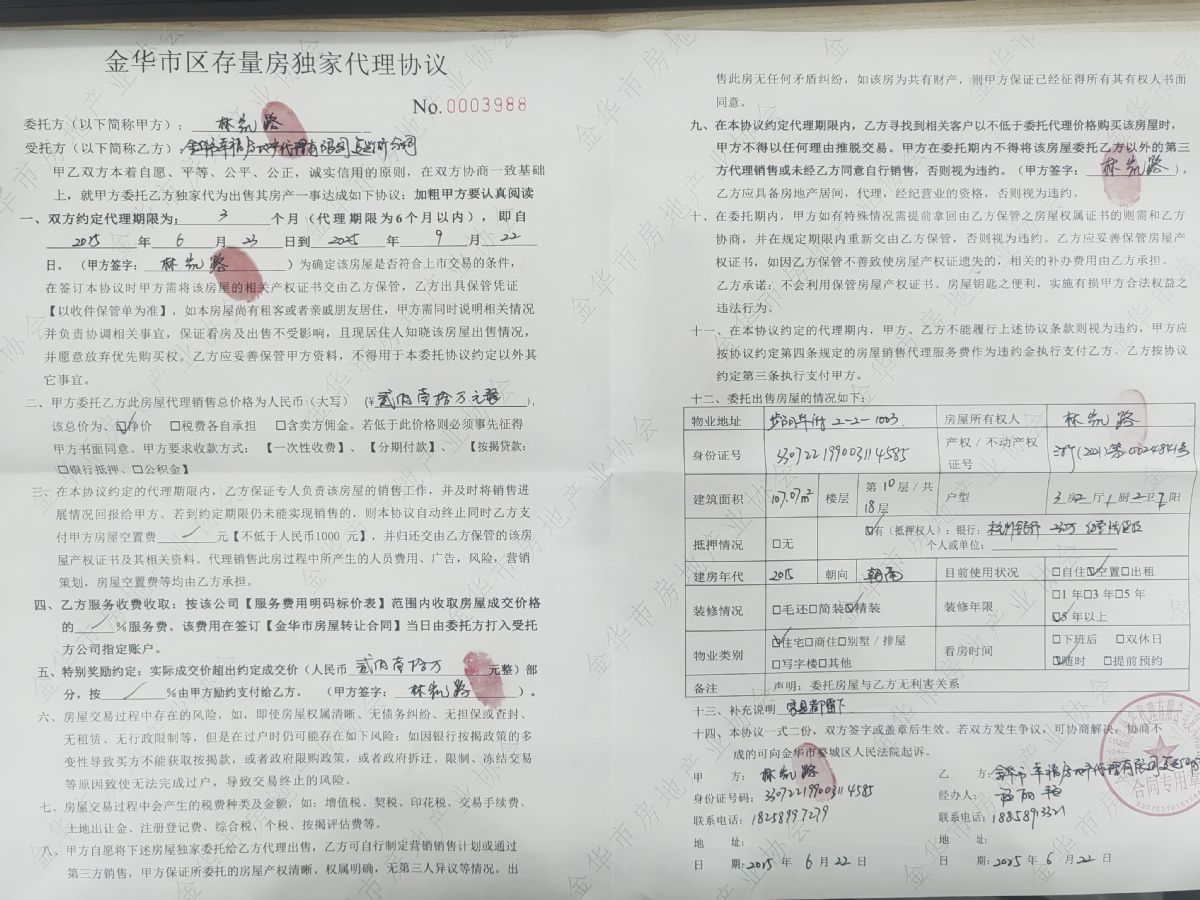 金华市区存量房独家代理协议
No.0003988
委托方（以下简称甲方）：林
受托方（以下简称乙方）：金华市幸福房地产代理有限公司
甲乙双方本着自愿、平等、公平、公正，诚实信用的原则，在双方协商一致基础
上，就甲方委托乙方独家代为出售其房产一事达成如下协议：加粗甲方要认真阅读
一、双方约定代理期限为：3个月（代理期限为6个月以内），即自
年6月23日到2025年9月22
日。（甲方签字：林）为确定该房屋是否符合上市交易的条件，
在签订本协议时甲方需将该房屋的相关产权证书交由乙方保管，乙方出具保管凭证
【以收件保管单为准】，如本房屋尚有租客或者亲戚朋友居住，甲方需同时说明相关情况
并负责协调相关事宜，保证看房及出售不受影响，且现居住人知晓该房屋出售情况，
并愿意放弃优先购买权。乙方应妥善保管甲方资料，不得用于本委托协议约定以外其
它事宜。
二、甲方委托乙方此房屋代理销售总价格为人民币（大写）（¥贰佰壹拾万元整），
该总价为、☑净价 □税费各自承担 □含卖方佣金。若低于此价格则必须事先征得
甲方书面同意。甲方要求收款方式：【一次性收费】、【分期付款】、【按揭贷款：
□银行抵押、□公积金】
三、在本协议约定的代理期限内，乙方保证专人负责该房屋的销售工作，并及时将销售进
展情况回报给甲方。若到约定期限仍未能实现销售的，则本协议自动终止同时乙方支
付甲方房屋空置费／元【不低于人民币1000 元】，并归还交由乙方保管的该房
屋产权证书及其相关资料。代理销售此房过程中所产生的人员费用、广告，风险，营销
策划，房屋空置费等均由乙方承担。
四、乙方服务收费收取：按该公司【服务费用明码标价表】范围内收取房屋成交价格
的／%服务费。该费用在签订【金华市房屋转让合同】当日由委托方打入受托
方公司指定账户。
五、特别奖励约定：实际成交价超出约定成交价（人民币贰佰壹拾万元整）部
分，按／%由甲方励约支付给乙方。（甲方签字：林）。
六、房屋交易过程中存在的风险，如，即使房屋权属清晰、无债务纠纷、无担保或查封、
无租赁、无行政限制等，但是在过户时仍可能存在如下风险：如因银行按揭政策的多
变性导致买方不能获取按揭款，或者政府限购政策，或者政府拆迁、限制、冻结交易
等原因致使无法完成过户，导致交易终止的风险。
七、房屋交易过程中会产生的税费种类及金额，如：增值税、契税、印花税、交易手续费、
土地出让金、注册登记费、综合税、个税、按揭评估费等。
八、甲方自愿将下述房屋独家委托给乙方代理出售，乙方可自行制定营销销售计划或通过
第三方销售，甲方保证所委托的房屋产权清晰、权属明确，无第三人异议等情况。出
售此房无任何矛盾纠纷，如该房为共有财产，则甲方保证已经征得所有其有权人书面
同意。
九、在本协议约定代理期限内，乙方寻找到相关客户以不低于委托代理价格购买该房屋时，
甲方不得以任何理由推脱交易。甲方在委托期内不得将该房屋委托乙方以外的第三
方代理销售或未经乙方同意自行销售，否则视为违约。（甲方签字：林），
乙方应具备房地产居间，代理，经纪营业的资格，否则视为违约。
十、在委托期内，甲方如有特殊情况需提前拿回由乙方保管之房屋权属证书的则需和乙方
协商，并在规定期限内重新交由乙方保管，否则视为违约。乙方应妥善保管房屋产
权证书，如因乙方保管不善致使房屋产权证遗失的，相关的补办费用由乙方承担。
乙方承诺：不会利用保管房屋产权证书、房屋钥匙之便利，实施有损甲方合法权益之
违法行为。
十一、在本协议约定的代理期内，甲方、乙方不能履行上述协议条款则视为违约，甲方应
按协议约定第四条规定的房屋销售代理服务费作为违约金执行支付乙方。乙方按协议
约定第三条执行支付甲方。
十二、委托出售房屋的情况如下：
物业地址 2-2-1003. 房屋所有权人 林
身份证号 330722199003114585 产权／不动产权证号 (2021)第0024841号
建筑面积 107.07m² 楼层 第10层／共18层 户型 3房2厅1厨2卫1阳
抵押情况 □无 ☑有（抵押权人）：银行：杭州银行 230万
个人或单位：
建房年代 2015 朝向 朝南 目前使用状况 □自住☑空置□出租
装修情况 □毛还□简装☑精装 装修年限 □1 年□3 年□5 年
☑8年以上
物业类别 ☑住宅□商住□别墅／排屋
□写字楼□其他 看房时间 □下班后 □双休日
☑随时 □提前预约
备注 声明：委托房屋与乙方无利害关系
十三、补充说明 家具都留下
十四、本协议一式二份，双方签字或盖章后生效。若双方发生争议，可协商解决，协商不
成的可向金华市婺城区人民法院起诉。
甲 方：林
身份证号码：330722199003114585
联系电话：18258997279
地 址：
日 期：2025年6月22日
乙 方：金华市幸福房地产代理有限公司
经办人：
联系电话：18858913321
地 址：
日 期：2025年6月22日
合同专用章
金华市房地产业协会